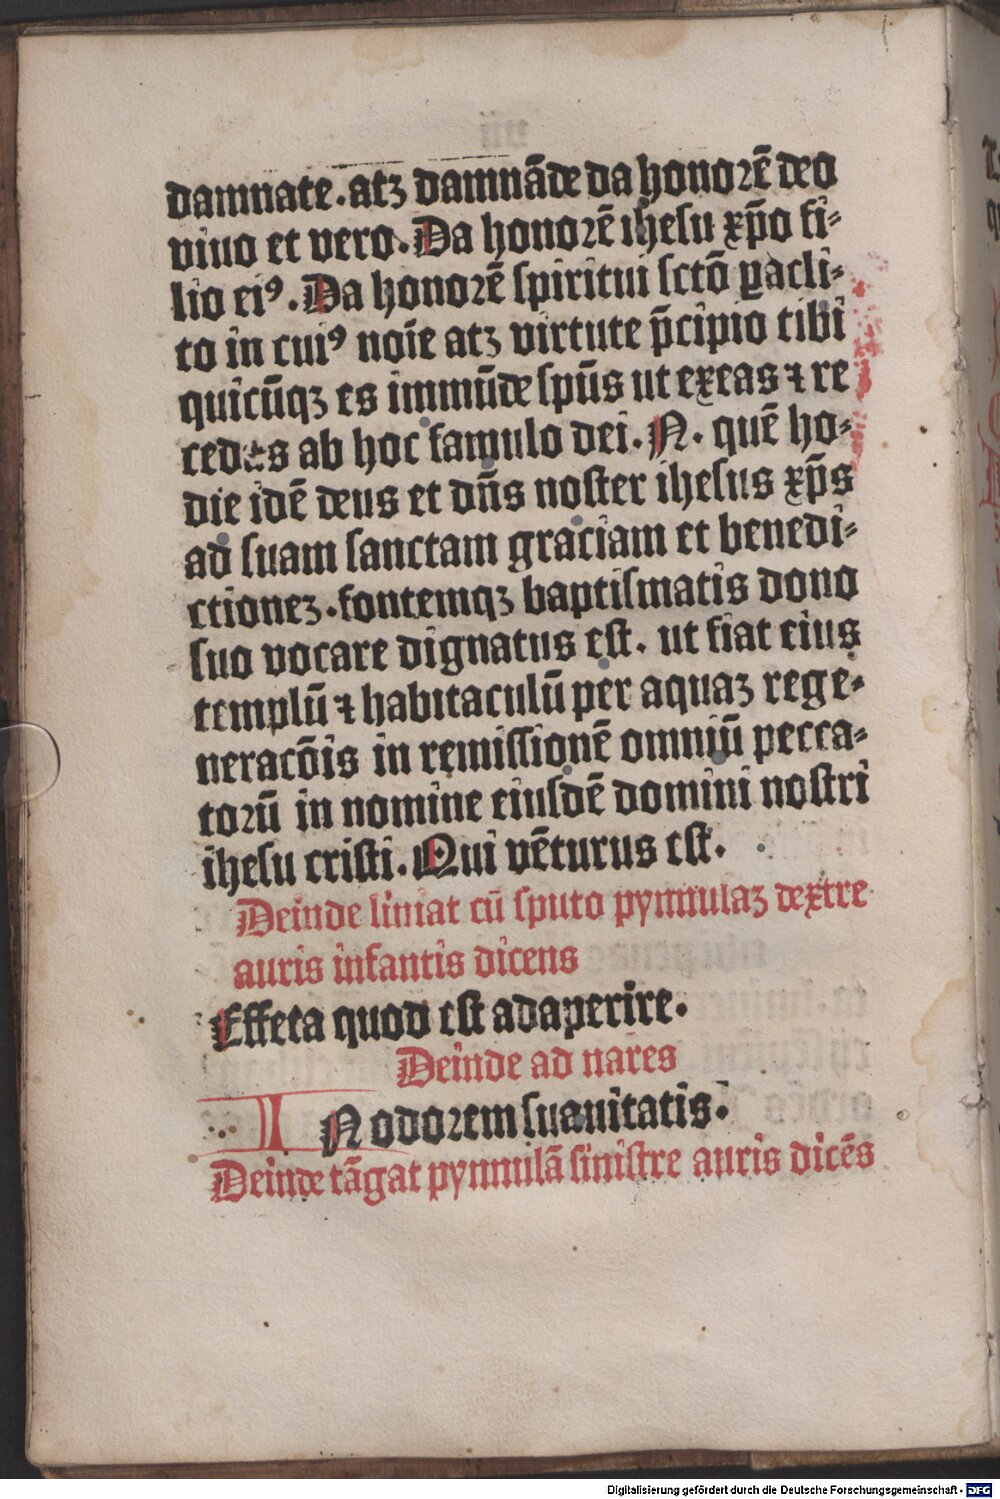 damnate. atꝫ damnāde da honorē deo
viuo et vero. Da honorē ihesu xp̄o fi-
lio eiꝰ. Da honorē spiritui sctō ꝑacli-
to in cuiꝰ noīe atꝫ virtute p̄cipio tibi
quicūqꝫ es immūde spūs ut exeas ⁊ re
cedas ab hoc famulo dei. N. quē ho-
die idē deus et dn̄s noster ihesus xp̄s
ad suam sanctam graciam et benedi-
ctioneꝫ. fontemqꝫ baptismatis dono
suo vocare dignatus est. ut fiat eius
templū ⁊ habitaculū per aquaꝫ rege-
neracōis in remissionē omniū pecca-
torū in nomine eiusdē domini nostri
ihesu cristi. Qui vēturus est.
Deinde liniat cū sputo pynnulaꝫ dextre
auris infantis dicens
Effeta quod est adaperire.
Deinde ad nares
IN odorem suauitatis.
Deinde tāgat pynnulā sinistre auris dicēs
Digitalisierung gefördert durch die Deutsche Forschungsgemeinschaft - DFG